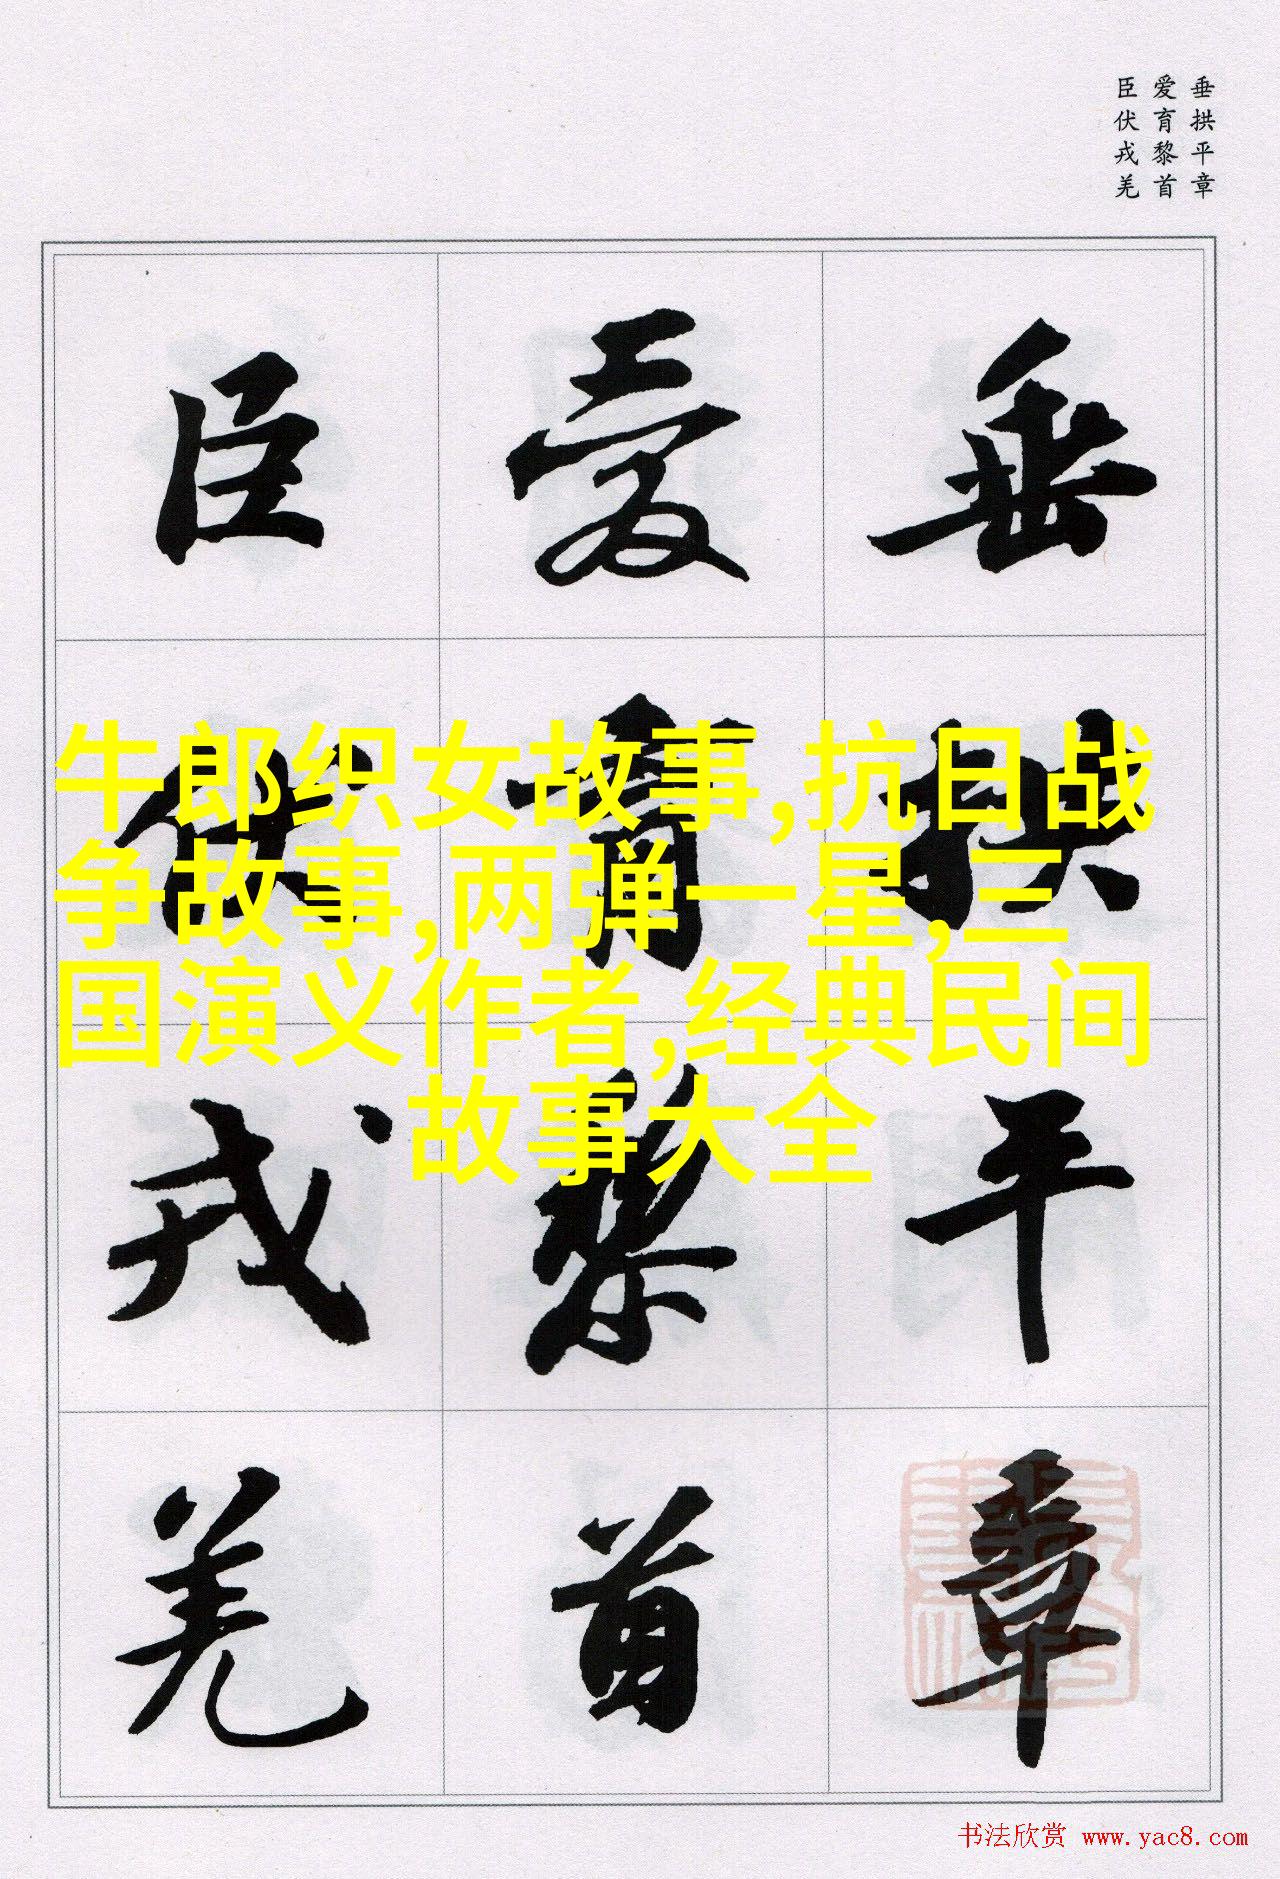 垂拱平章
爱育黎首
臣伏戎羌
垂拱平章
爱育黎首
臣伏戎羌
牛郎织女故事,抗日战
争故事,两弹一星,三
国演义作者,经典民间
故事大全
书法欣赏 www.yac8.com